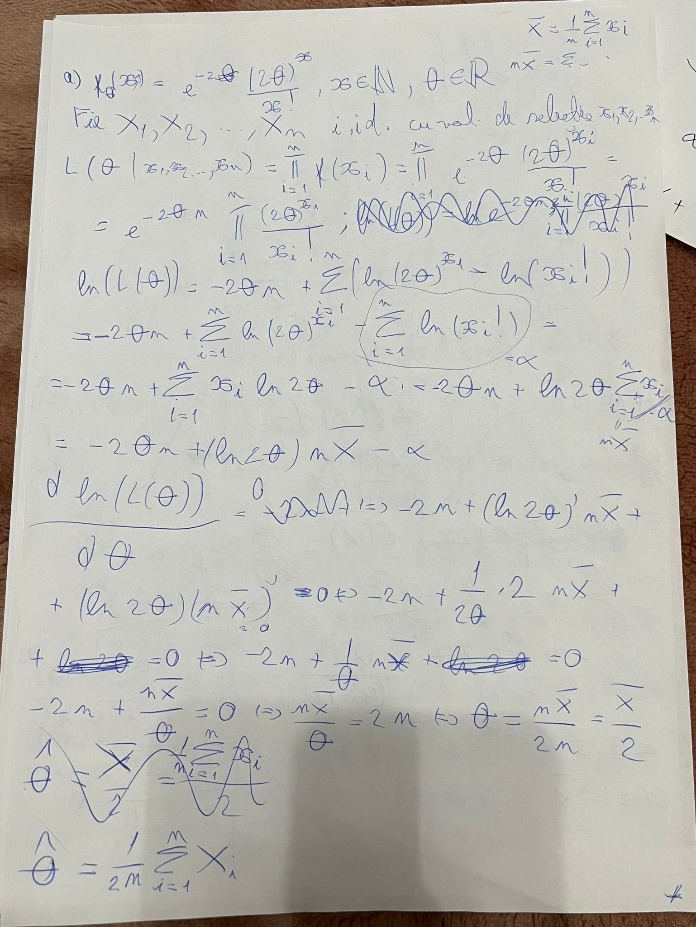 x̄ = 1/n Σ_{i=1}^{n} x_i
n x̄ = Σ
a) f_θ(x_i) = e^{-2θ} (2θ)^x / x! , x ∈ ℕ , θ ∈ ℝ
Fie X_1, X_2, ..., X_n i.id. cu val. de selecție x_1, x_2, .. x_n
L(θ | x_1, x_2 ..., x_n) = ∏_{i=1}^{n} f(x_i) = ∏_{i=1}^{n} e^{-2θ} (2θ)^{x_i} / x_i! =
= e^{-2θn} ∏_{i=1}^{n} (2θ)^{x_i} / x_i! ;
ln(L(θ)) = -2θn + Σ_{i=1}^{n} (ln(2θ)^{x_i} - ln(x_i!))
= -2θn + Σ_{i=1}^{n} ln(2θ)^{x_i} - Σ_{i=1}^{n} ln(x_i!) =
= α
= -2θn + Σ_{i=1}^{n} x_i ln2θ - α = -2θn + ln2θ Σ_{i=1}^{n} x_i - α
n x̄
= -2θn + (ln2θ) n x̄ - α
d ln(L(θ)) / dθ = 0 ⇔ -2n + (ln2θ)' n x̄ +
+ (ln 2θ)(n x̄)' = 0 ⇔ -2n + 1/2θ · 2 n x̄ +
= 0
+ = 0 ⇔ -2n + 1/θ n x̄ + = 0
-2n + n x̄ / θ = 0 ⇔ n x̄ / θ = 2n ⇔ θ = n x̄ / 2n = x̄ / 2
θ̂ = x̄ / 2 = 1/n Σ_{i=1}^{n} x_i / 2
θ̂ = 1/2n Σ_{i=1}^{n} X_i